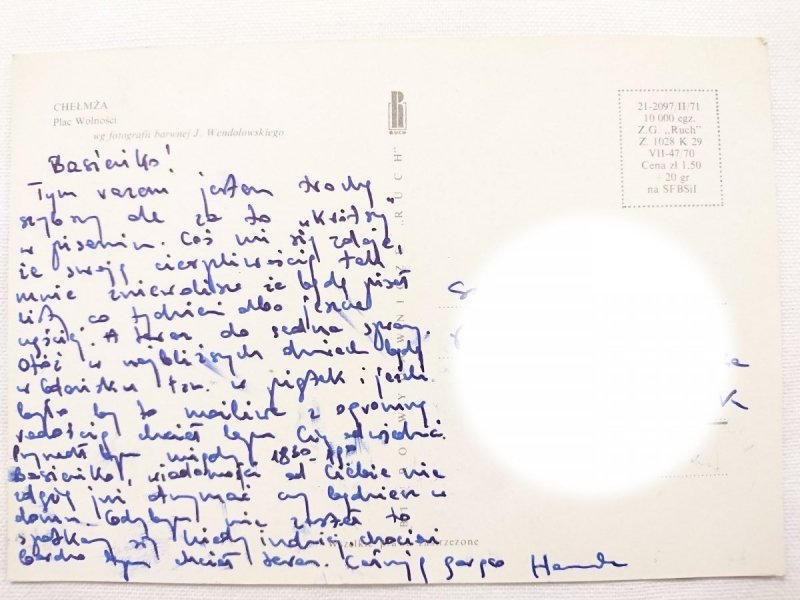 CHEŁMŻA
Plac Wolności
wg fotografii barwnej J. Wendołowskiego
R
RUCH
"RUCH"
21-2097/II/71
10 000 egz.
Z.G. „Ruch”
Z. 1028 K 29
VII-47/70
Cena zł 1,50
+ 20 gr
na SFBSiI
Basieńko!
Tym razem jestem trochę
szybszy ale za to „krótszy”
w pisaniu. Coś mi się zdaje,
że swoją cierpliwością tak
mnie zniewolisz że będę pisał
listy co tydzień albo jeszcze
częściej. A teraz do sedna sprawy.
Otóż w najbliższych dniach będę
w Gdańsku tzn. w piątek i jeśli
było by to możliwe z ogromną
radością chciał bym Cię odwiedzić.
Przyszedł bym między 18³⁰-19⁰⁰
Basieńko, wiadomości od Ciebie nie
zdążę już otrzymać czy będziesz w
domu. Gdybym nie zastał to
spotkamy się kiedy indziej, chociaż
bardzo bym chciał teraz. Całuję gorąco